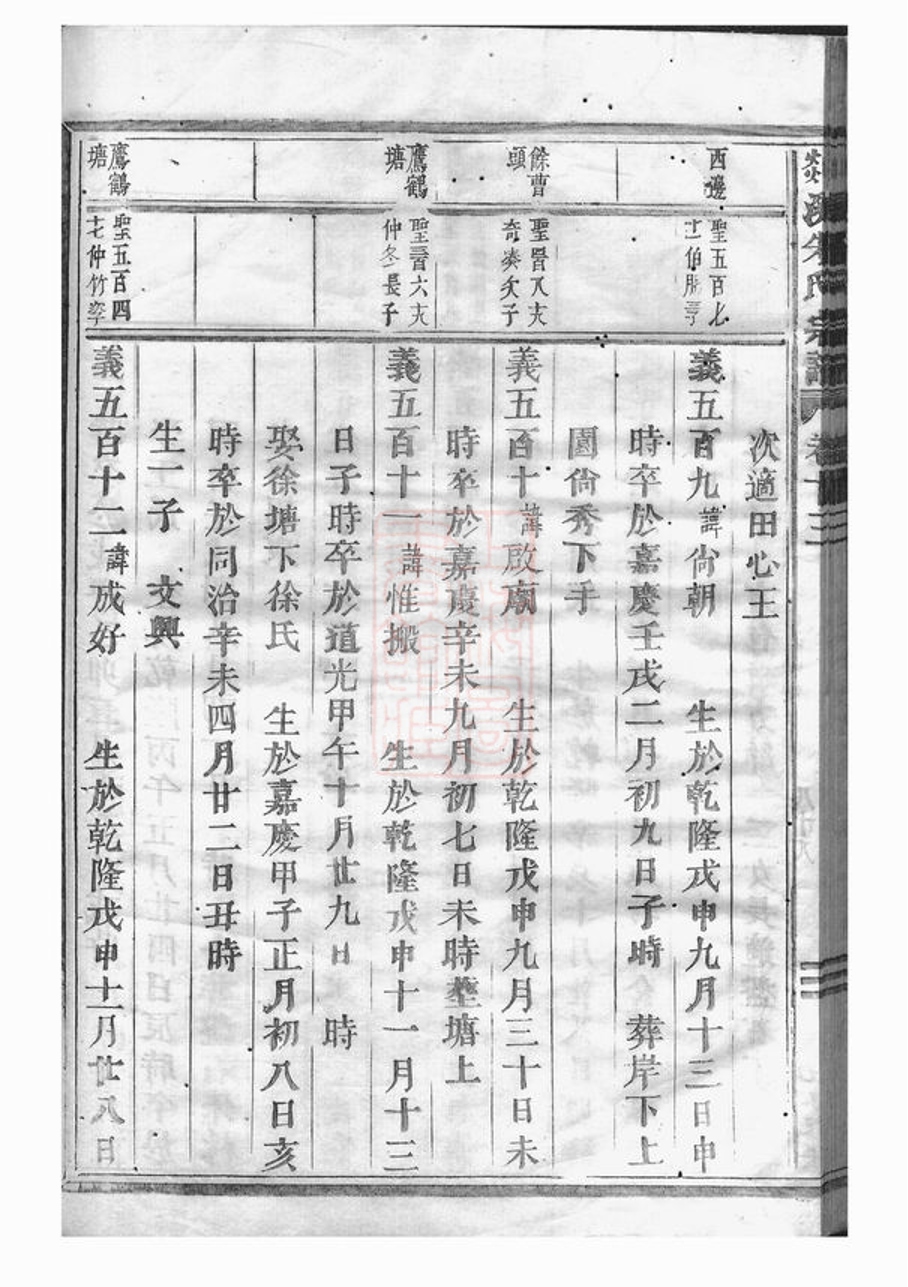 朱氏宗譜 卷十三
次適田心王
西邊
聖五百七
義五百九諱尙朝 生於乾隆戊申九月十三日申
時卒於嘉慶壬戌二月初九日子時 葬岸下上
園尙秀下手
餘曹
頭
義五百十諱啟廟 生於乾隆戊申九月三十日未
時卒於嘉慶辛未九月初七日未時塟塘上
鷹鶴
塘
仲冬長子
義五百十一諱惟搬 生於乾隆戊申十一月十三
日子時卒於道光甲午十月廿九日 時
娶徐塘下徐氏 生於嘉慶甲子正月初八日亥
時卒於同治辛未四月廿二日丑時
生一子 文興
鷹鶴
塘
聖五百四
義五百十二諱成好 生於乾隆戊申十二月廿八日